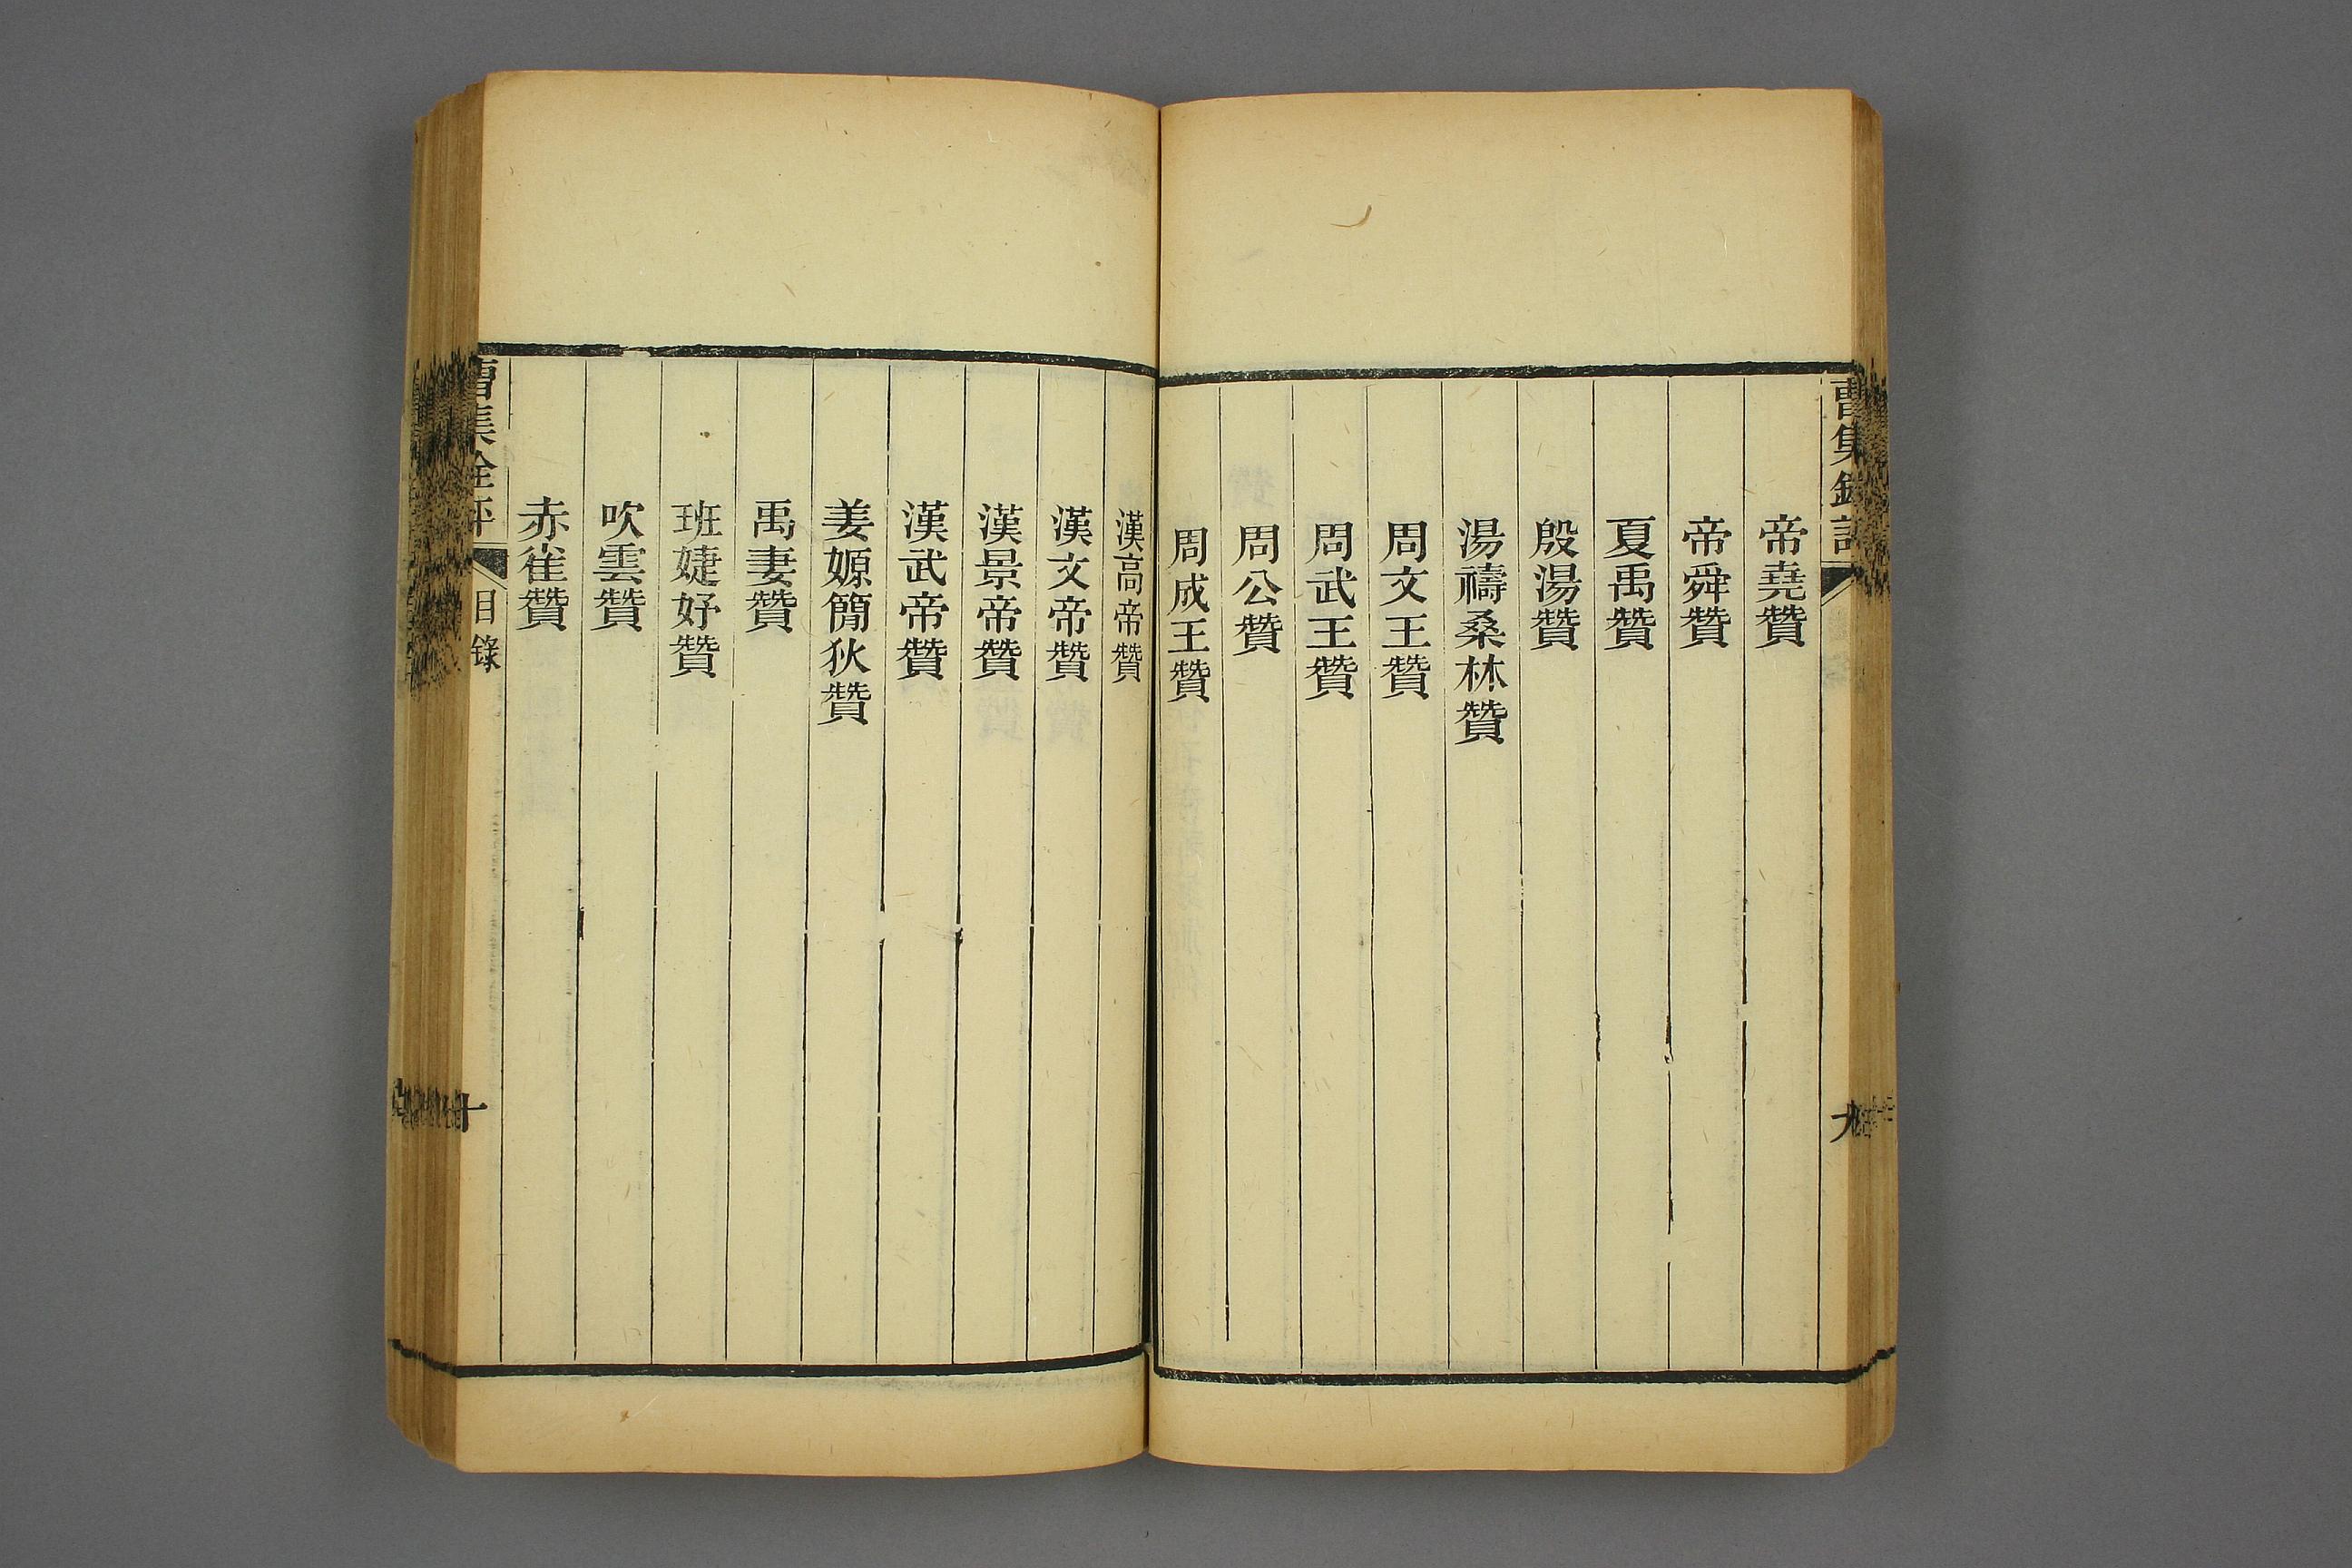 曹集銓評
帝堯贊
帝舜贊
夏禹贊
殷湯贊
湯禱桑林贊
周文王贊
周武王贊
周公贊
周成王贊
九
漢高帝贊
漢文帝贊
漢景帝贊
漢武帝贊
姜嫄簡狄贊
禹妻贊
班婕妤贊
吹雲贊
赤雀贊
曹集銓評
目錄
十